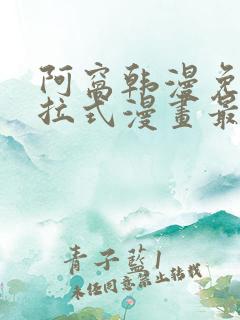 阿窩韩漫免
拉式漫畫最
青子藍1
未经同意禁止转载